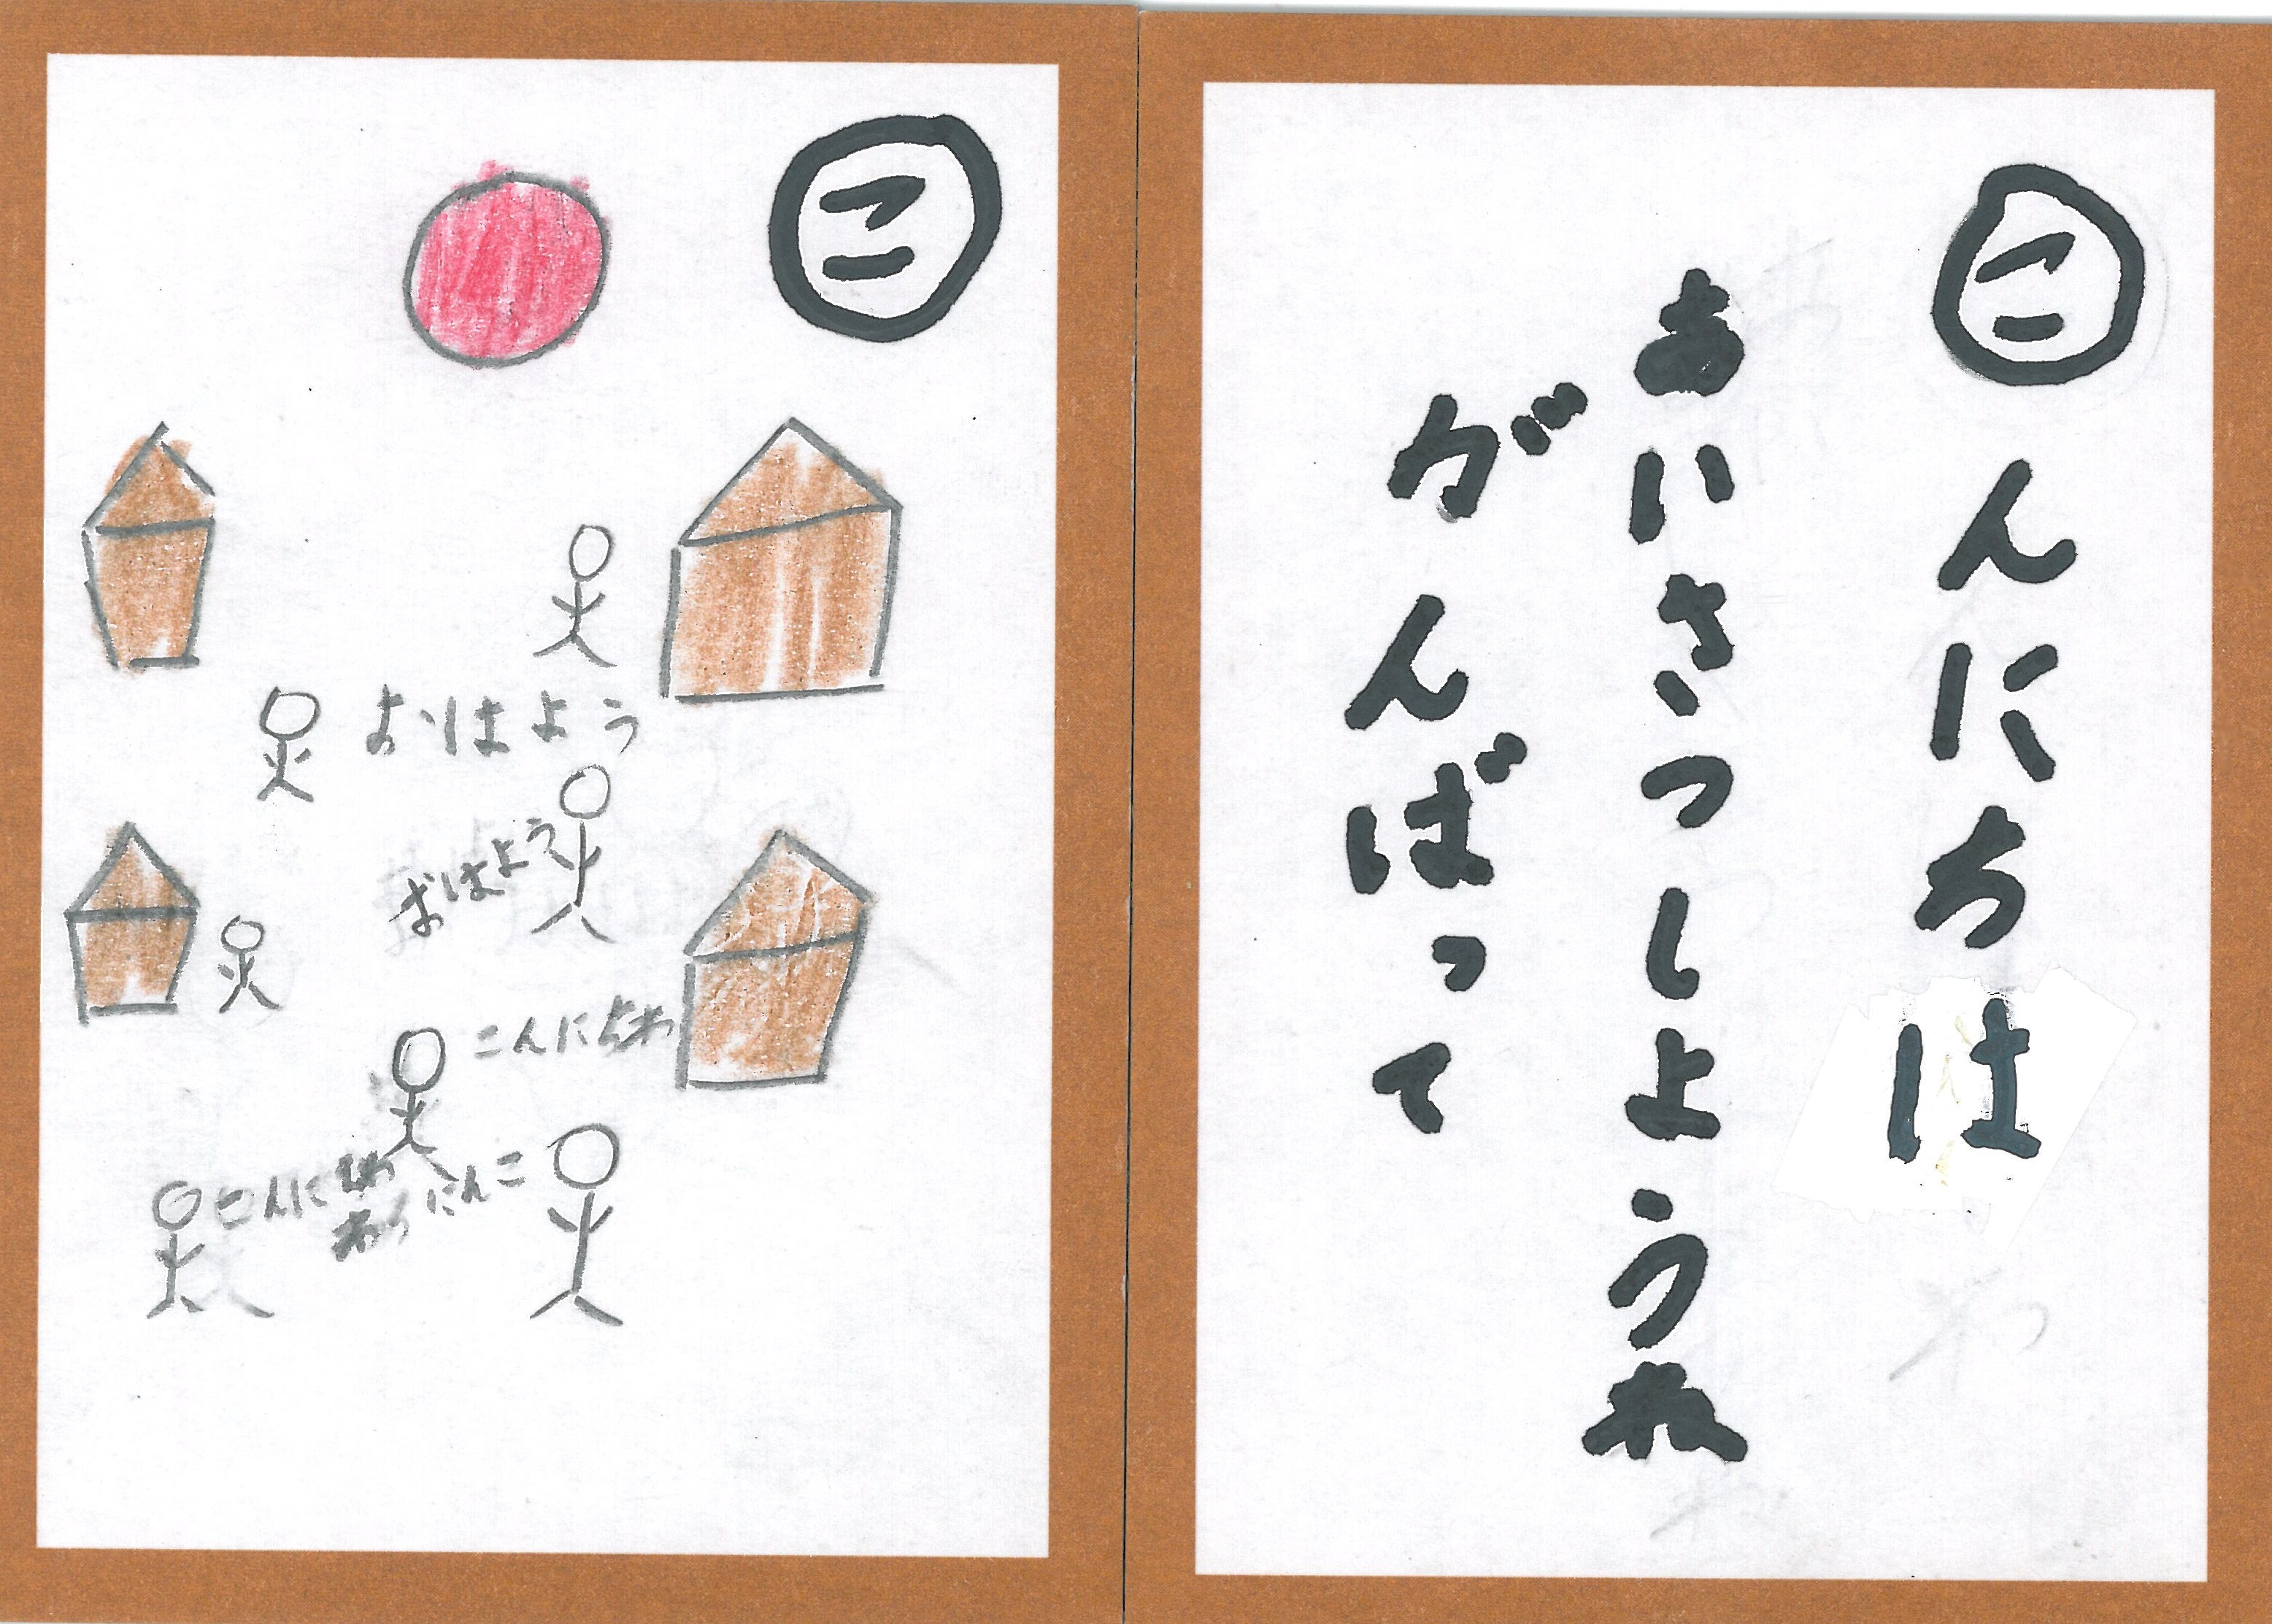 こんにちは
あいさつしようね
がんばって
こ
おはよう
おはよう
こんにちわ
こんにちわ
こんにちわ